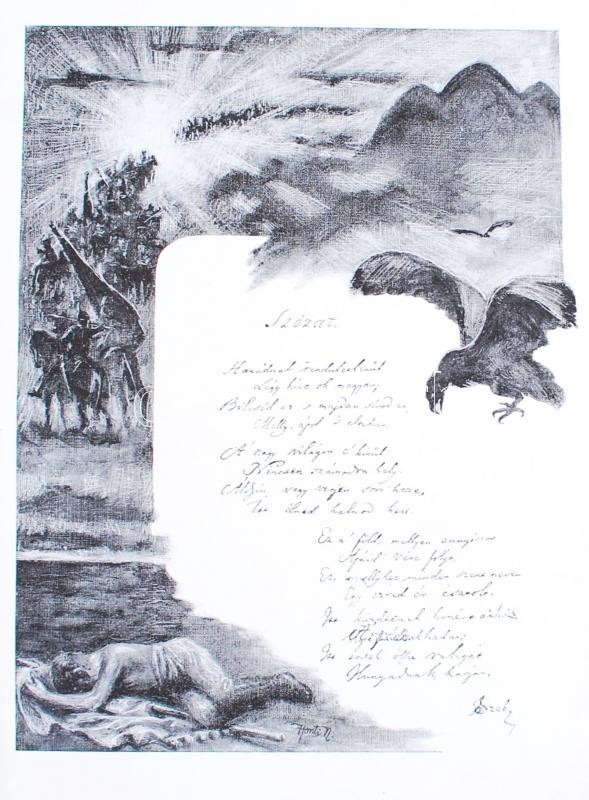 Szózat.
Hazádnak rendületlenül
Légy híve oh magyar;
Bölcsőd az s majdan sírod is,
Melly ápol s eltakar.
A' nagy világon e' kivül
Nincsen számodra hely;
Áldjon vagy verjen sors keze,
Itt élned halnod kell.
Ez a' föld, mellyen annyiszor
Apáid' vére folyt,
Ez, mellyhez minden szent nevet
Egy ezred év csatolt.
Itt küzdtenek honért a'
Árpádnak hadai;
Itt törtek össze rabigát
Hunyadnak karjai.
Honti N.